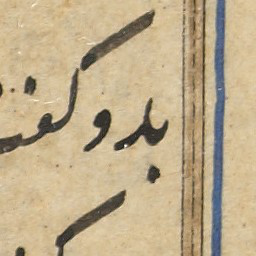 بدو گفت